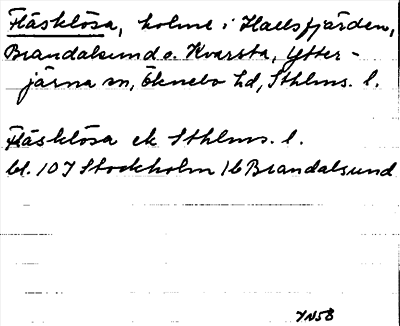 Fläsklösa, holme i Hallsfjärden,
Brandalsund o. Kvarsta, Ytter-
järna sn, Öknebo hd, Sthlms. l.
Fläsklösa ek Sthlms. l.
bl. 107 Stockholm 1b Brandalsund
YN58